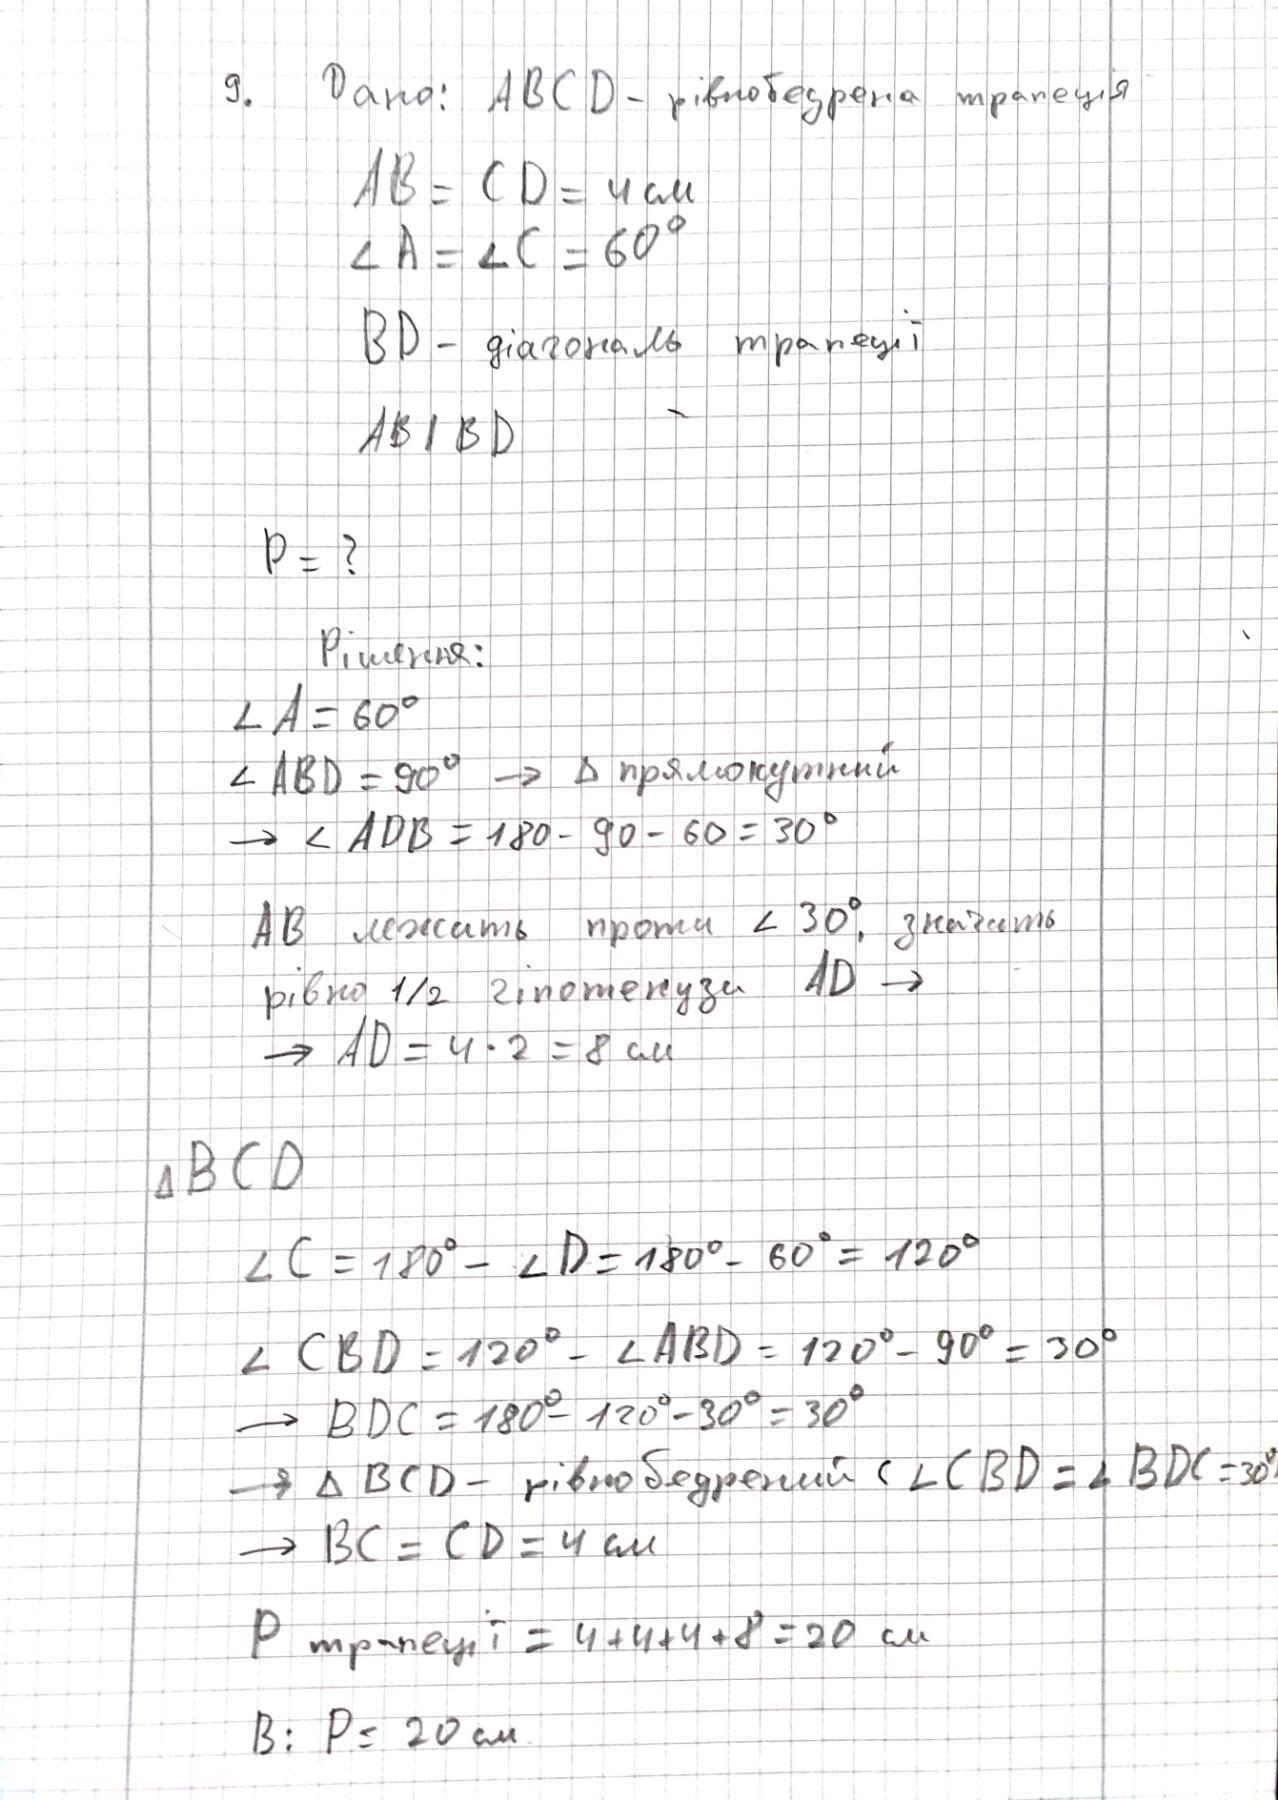 9. Дано: ABCD - рівнобедрена трапеція
AB = CD = 4 см
∠A = ∠C = 60°
BD - діагональ трапеції
AB | BD
P = ?
Рішення:
∠A = 60°
∠ABD = 90° → Δ прямокутний
→ ∠ADB = 180 - 90 - 60 = 30°
AB лежить проти ∠30°, значить
рівно 1/2 гіпотенузи AD →
→ AD = 4 · 2 = 8 см
ΔBCD
∠C = 180° - ∠D = 180° - 60° = 120°
∠CBD = 120° - ∠ABD = 120° - 90° = 30°
→ BDC = 180° - 120° - 30° = 30°
→ Δ BCD - рівнобедрений (∠CBD = ∠BDC = 30°)
→ BC = CD = 4 см
P трапеції = 4+4+4+8 = 20 см
В: P = 20 см